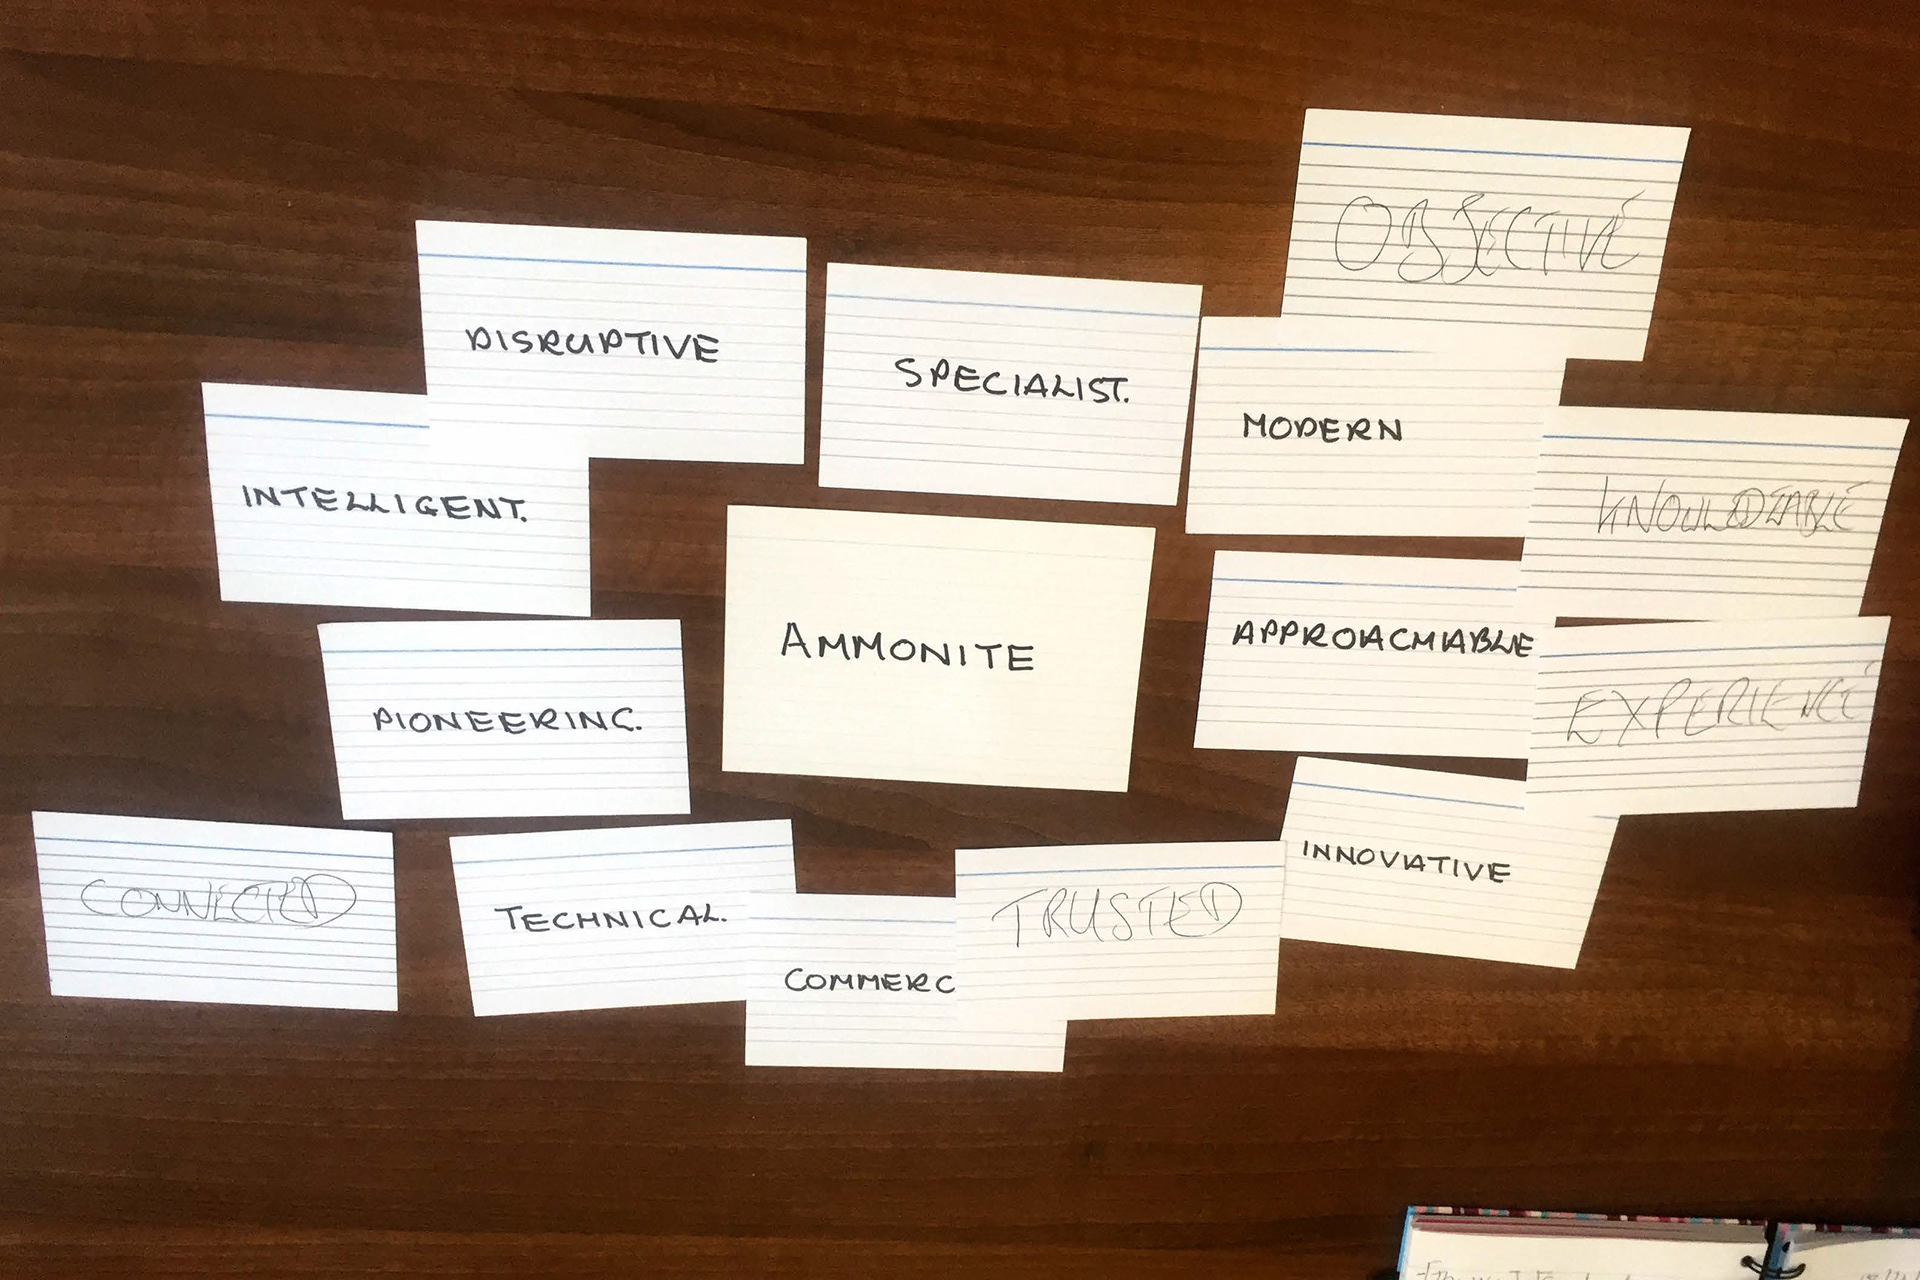 OBJECTIVE
DISRUPTIVE
SPECIALIST.
MODERN
INTELLIGENT.
KNOWLEDZABLE
AMMONITE
APPROACHABLE
PIONEERING.
EXPERIENCE
INNOVATIVE
CONNECTED
TECHNICAL.
TRUSTED
COMMERC